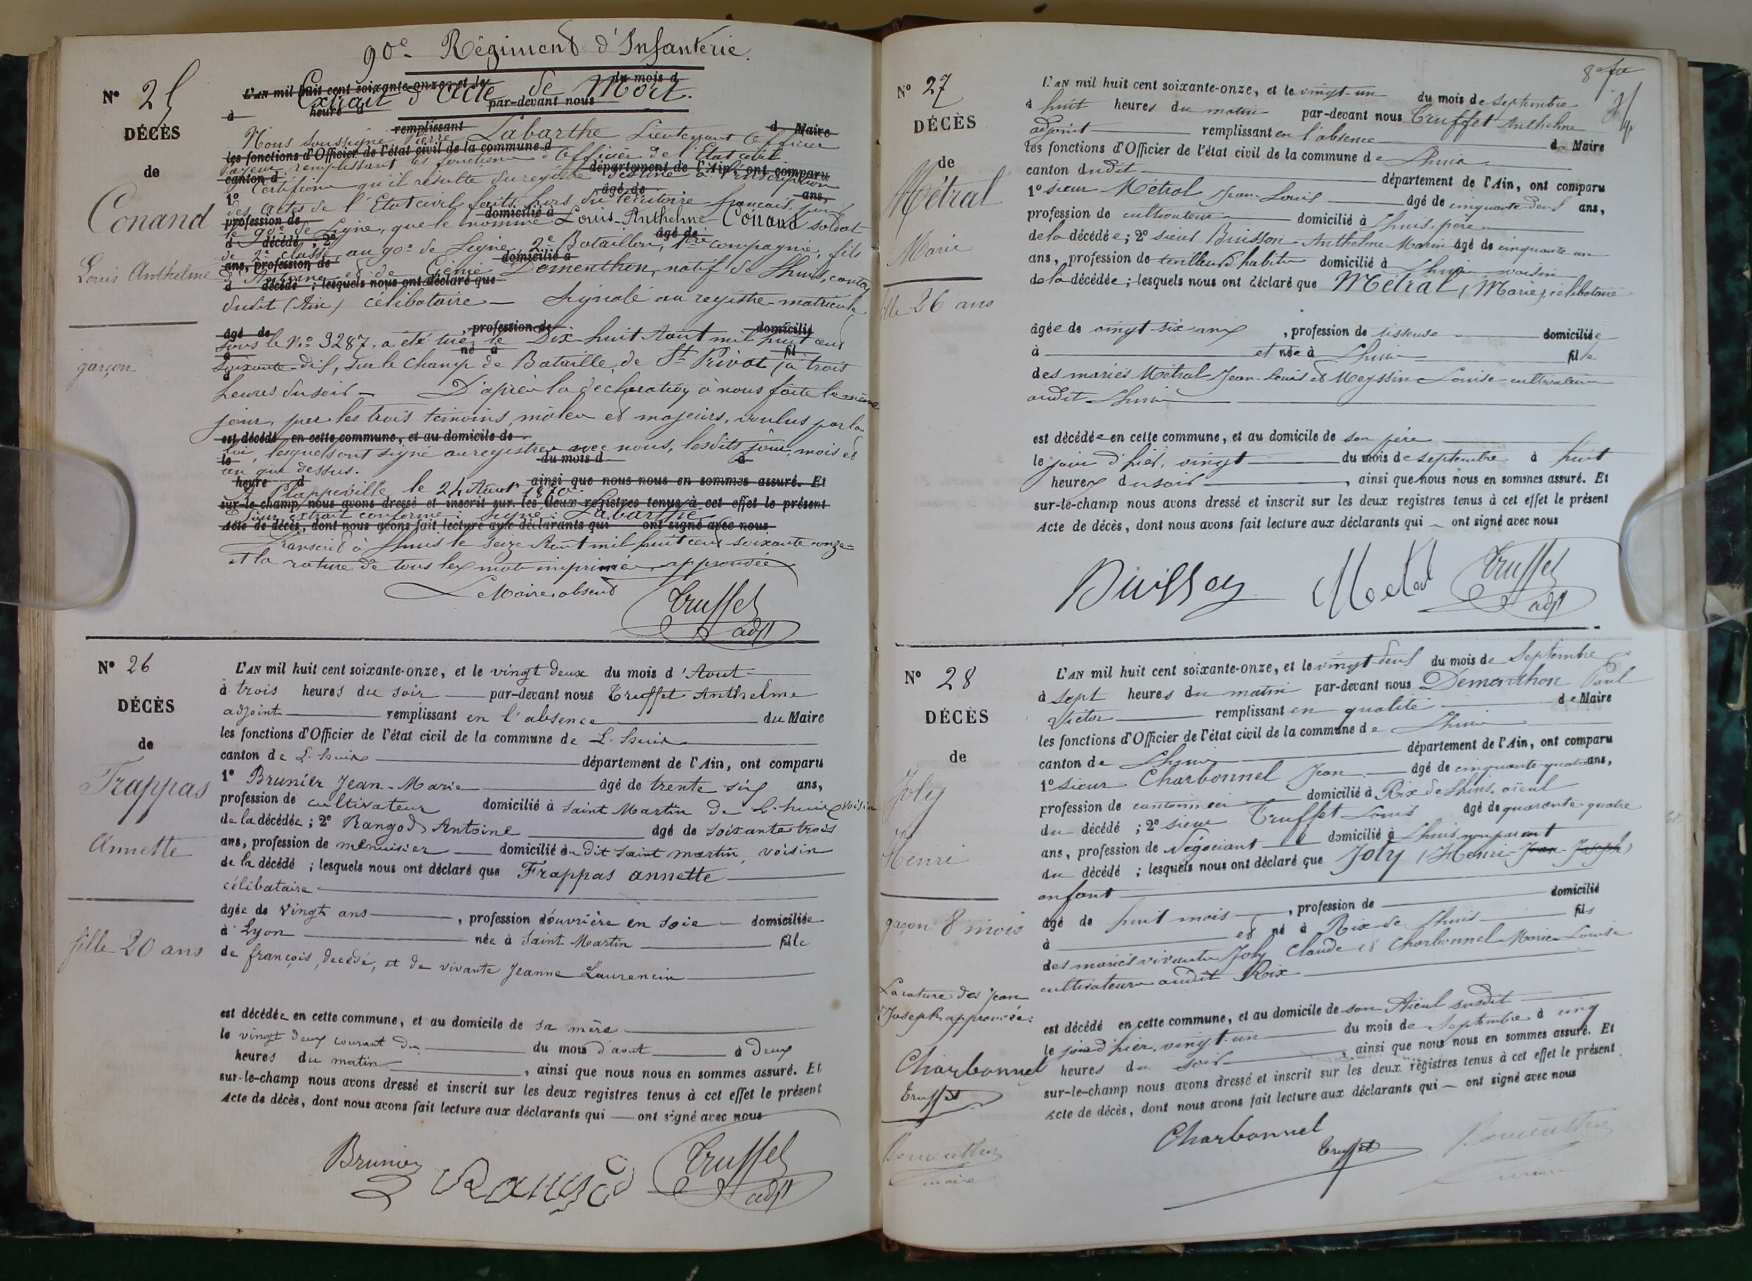 90e Régiment d'Infanterie.
N° 25
DÉCÈS
de
Conand
Louis Anthelme
garçon
L'AN mil huit cent soixante-onze, et le du mois d
Extrait d'Acte de Mort.
à heure d par-devant nous
remplissant d Maire
Nous soussigné Pierre Labarthe Lieutenant officier
les fonctions d'Officier de l'état civil de la commune d
payeur remplissant les fonctions d'Officier de l'Etat civil
canton d département de l'Ain, ont comparu
Certifions qu'il résulte du registre destiné à l'inscription
1° âgé de ans,
des actes de l'Etat civil faits hors du territoire français pour
profession de domicilié à
le 90e de Ligne, que le nommé Louis Anthelme Conand soldat
d décédé ; 2° âgé de
de 2e classe au 90e de Ligne, 2e Bataillon, 1ère compagnie, fils
ans, profession de domicilié à
d'Antoine et de Dementhon, natif de Lhuis, canton
d décédé ; lesquels nous ont déclaré que
dudit (Ain) célibataire — Signalé au registre matricule
âgé de profession de domicilié
sous le N° 3287, a été tué le Dix huit Août mil huit cent
à né à fil
soixante-dix, sur le Champ de Bataille de St Privat, à trois
heures du soir — D'après la déclaration à nous faite le même
jour, par les trois témoins, mâles et majeurs, voulus par la
est décédé en cette commune, et au domicile de
Loi, lesquels ont signé au registre avec nous, lesdits jour, mois et
le du mois d à
an que dessus.
heure d ainsi que nous nous en sommes assuré. Et
A Plappeville le 24 Août 1870.
sur-le-champ nous avons dressé et inscrit sur les deux registres tenus à cet effet le présent
Pour extrait conforme : signé : Labarthe
Acte de décès, dont nous avons fait lecture aux déclarants qui ont signé avec nous
Transcrit à Lhuis le seize Août mil huit cent soixante onze
et la rature de tous les mots imprimés approuvée
Le Maire absent
Truffet
adjt
N° 26
DÉCÈS
de
Frappas
Annette
fille 20 ans
L'AN mil huit cent soixante-onze, et le vingt deux du mois d'Aout
à trois heures du soir par-devant nous Truffet Anthelme
adjoint remplissant en l'absence du Maire
les fonctions d'Officier de l'état civil de la commune de L'huis
canton de L'huis département de l'Ain, ont comparu
1° Brunier Jean-Marie âgé de trente six ans,
profession de cultivateur domicilié à Saint Martin de L'huis voisin
de la décédée ; 2° Rangod Antoine âgé de soixante trois
ans, profession de menuisier domicilié au dit Saint Martin, voisin
de la décédé ; lesquels nous ont déclaré que Frappas annette
célibataire
âgée de vingt ans, profession d'ouvrière en soie domiciliée
à Lyon née à Saint Martin fille
de françois, décédé, et de vivante Jeanne Laurencin
est décédée en cette commune, et au domicile de sa mère
le vingt deux courant du mois d'aout à deux
heures du matin, ainsi que nous nous en sommes assuré. Et
sur-le-champ nous avons dressé et inscrit sur les deux registres tenus à cet effet le présent
Acte de décès, dont nous avons fait lecture aux déclarants qui — ont signé avec nous
Brunier Rangod Truffet
adjt
N° 27
DÉCÈS
de
Métral
Marie
fille 26 ans
L'AN mil huit cent soixante-onze, et le vingt-un du mois de Septembre
à huit heures du matin par-devant nous Truffet Anthelme
adjoint remplissant en l'absence du Maire
les fonctions d'Officier de l'état civil de la commune de Lhuis
canton dudit département de l'Ain, ont comparu
1° sieur Métral Jean Louis âgé de cinquante deux ans,
profession de cultivateur domicilié à Lhuis, père
de la décédée ; 2° sieur Buisson Anthelme Marin âgé de cinquante un
ans, profession de tailleur d'habits domicilié à Lhuis voisin
de la décédée ; lesquels nous ont déclaré que Métral (Marie) célibataire
âgée de vingt-six ans, profession de tisseuse domiciliée
à et née à Lhuis fille
des mariés Métral Jean-Louis et Meyssin Louise cultivateurs
audit Lhuis
est décédée en cette commune, et au domicile de son père
le jour d'hier, vingt du mois de septembre à huit
heures du soir, ainsi que nous nous en sommes assuré. Et
sur-le-champ nous avons dressé et inscrit sur les deux registres tenus à cet effet le présent
Acte de décès, dont nous avons fait lecture aux déclarants qui — ont signé avec nous
Buisson Metral Truffet
adjt
N° 28
DÉCÈS
de
Joly
Henri
garçon 8 mois
La rature des Jean
Joseph approuvée :
Charbonnel
Truffet
Dementhon
maire
L'AN mil huit cent soixante-onze, et le vingt-deux du mois de Septembre
à sept heures du matin par-devant nous Dementhon Paul
Victor remplissant en qualité de Maire
les fonctions d'Officier de l'état civil de la commune de Lhuis
canton de Lhuis département de l'Ain, ont comparu
1° sieur Charbonnel Jean âgé de cinquante-quatre ans,
profession de cantonnier domicilié à Rix de Lhuis, aïeul
du décédé ; 2° sieur Truffet Louis âgé de quarante-quatre
ans, profession de Négociant domicilié à Lhuis non parent
du décédé ; lesquels nous ont déclaré que Joly (Henri Jean Joseph)
enfant domicilié
âgé de huit mois, profession de
à et né à Rix de Lhuis fils
des mariés vivants Joly Claude et Charbonnel Marie Louise
cultivateurs audit Rix
est décédé en cette commune, et au domicile de son Aïeul susdit
le jour d'hier, vingt-un du mois de Septembre à cinq
heures du soir, ainsi que nous nous en sommes assuré. Et
sur-le-champ nous avons dressé et inscrit sur les deux registres tenus à cet effet le présent
Acte de décès, dont nous avons fait lecture aux déclarants qui — ont signé avec nous
Charbonnel
Truffet Dementhon
maire